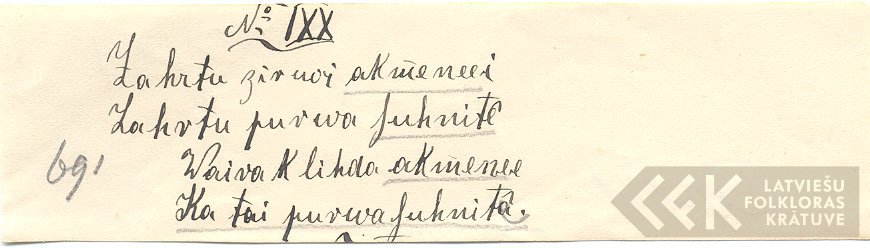 № IXX
Zahrtu zirnoi akmeneei
Zahrtu purwa ſuhnitê
691 Vaivaklihda akmenee
Ka tai purwa ſuhnitâ.
LATVIEŠU
FOLKLORAS
KRĀTUVE